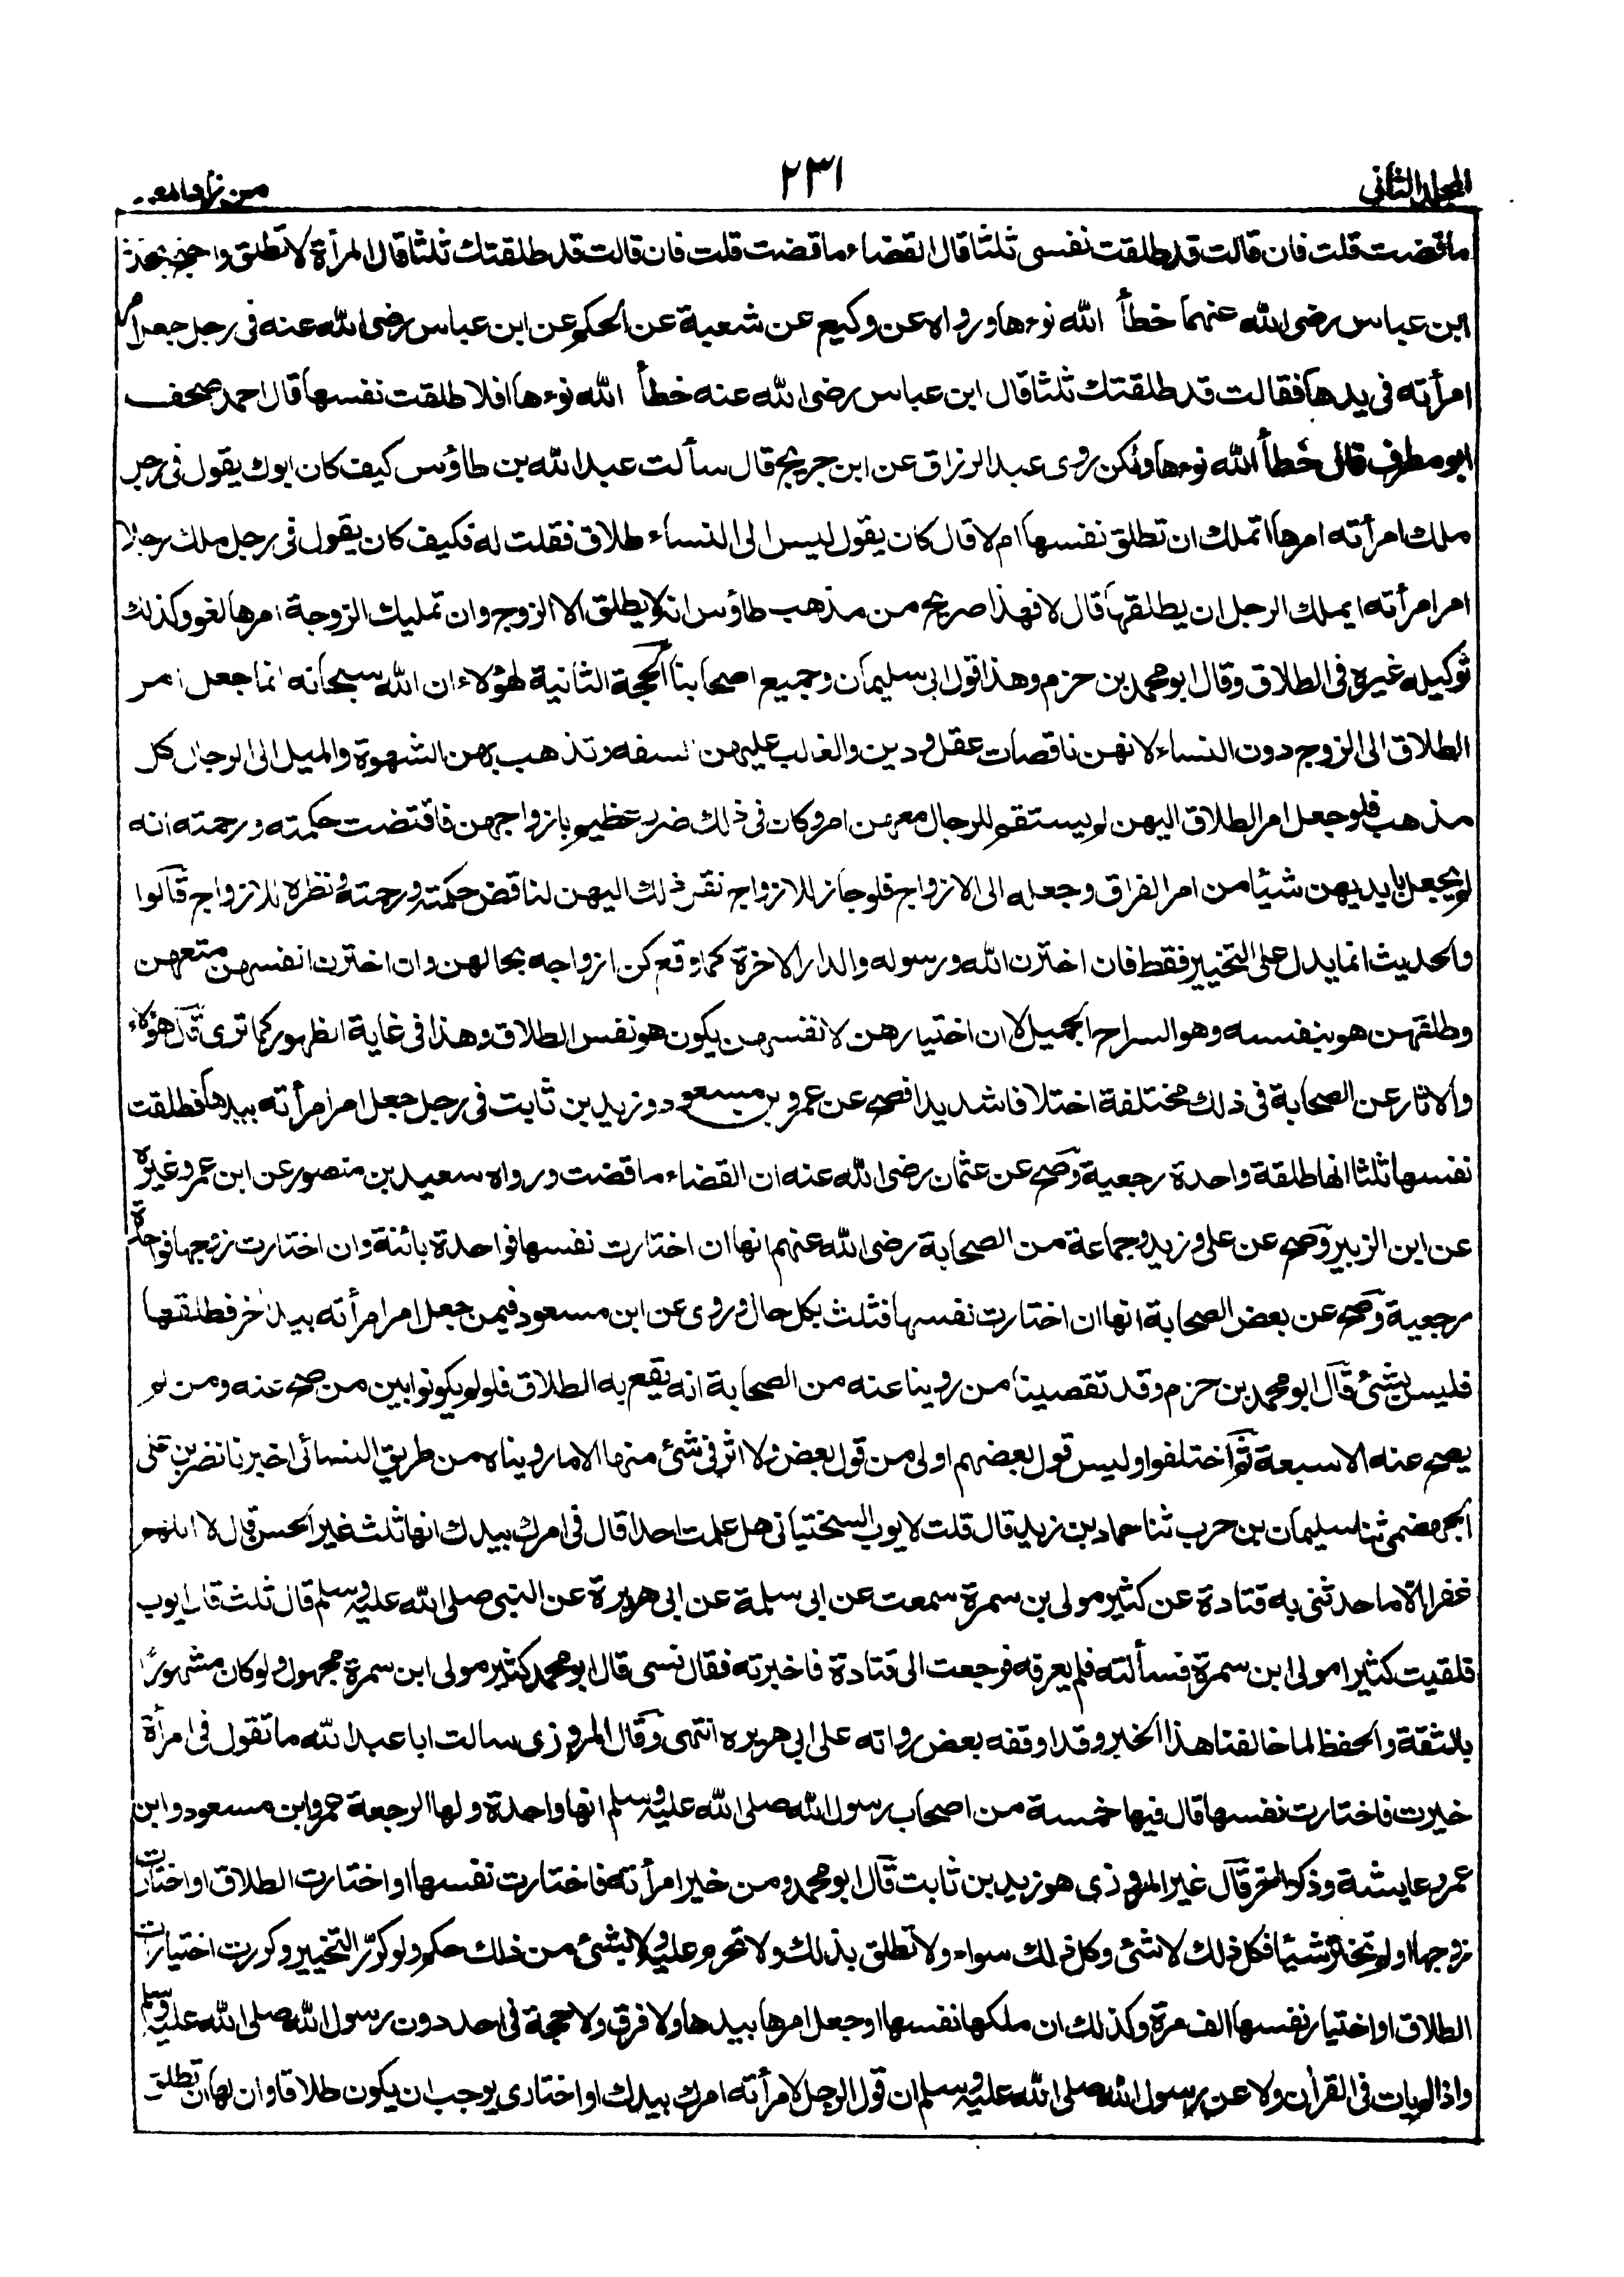 المجلد الثاني
٢٣١
من زاد المعاد
ما قضت قلت فان قالت قد طلقت نفسى ثلثا قال القضاء ما قضت قلت فان قالت قد طلقتك ثلثا قال المرأة لا تطلق واحتج بحديث
ابن عباس رضى الله عنهما خطأ الله نوءها ورواه عن وكيع عن شعبة عن الحكم عن ابن عباس رضى الله عنه فى رجل جعل امر
امرأته فى يدها فقالت قد طلقتك ثلثا قال ابن عباس رضى الله عنه خطأ الله نوءها افلا طلقت نفسها قال احمد صحف
ابو مطرف قال خطأ الله نوءها ولكن روى عبد الرزاق عن ابن جريج قال سألت عبد الله بن طاؤس كيف كان ابوك يقول فى رجل
ملك امرأته امرها اتملك ان تطلق نفسها ام لا قال كان يقول ليس الى النساء طلاق فقلت له فكيف كان يقول فى رجل ملك رجلا
امر امرأته ايملك الرجل ان يطلقها قال لا فهذا صريح من مذهب طاؤس انه لا يطلق الا الزوج وان تمليك الزوجة امرها لغو وكذلك
توكيله غيره فى الطلاق وقال ابو محمد بن حزم وهذا قول ابى سليمان وجميع اصحابنا الحجة الثانية لهؤلاء ان الله سبحانه انما جعل امر
الطلاق الى الزوج دون النساء لانهن ناقصات عقل ودين والغالب عليهن السفه وتذهب بهن الشهوة والميل الى الرجال كل
مذهب فلو جعل امر الطلاق اليهن لم يستقم للرجال معهن امر وكان فى ذلك ضرر عظيم بازواجهن فاقتضت حكمته ورحمته انه
لم يجعل بايديهن شيئا من امر الفراق وجعله الى الازواج فلو جاز للازواج نقل ذلك اليهن لناقض حكمته ورحمته ونظره للازواج قالوا
والحديث انما يدل على التخيير فقط فان اخترن الله ورسوله والدار الاخرة كما وقع كن ازواجه بحالهن وان اخترن انفسهن متعهن
وطلقهن هو بنفسه وهو السراح الجميل لا ان اختيارهن لانفسهن يكون هو نفس الطلاق وهذا فى غاية الظهور كما ترى قال هؤلاء
والاثار عن الصحابة فى ذلك مختلفة اختلافا شديدا فصح عن عمر وبن مسعود وزيد بن ثابت فى رجل جعل امر امرأته بيدها فطلقت
نفسها ثلثا انها طلقة واحدة رجعية وصح عن عثمان رضى الله عنه ان القضاء ما قضت ورواه سعيد بن منصور عن ابن عمر وغيره
عن ابن الزبير وصح عن على وزيد وجماعة من الصحابة رضى الله عنهم انها ان اختارت نفسها فواحدة بائنة وان اختارت زوجها فواحدة
رجعية وصح عن بعض الصحابة انها ان اختارت نفسها فثلث بكل حال وروى عن ابن مسعود فيمن جعل امر امرأته بيد اخر فطلقها
فليس بشئ قال ابو محمد بن حزم وقد تقصينا من روينا عنه من الصحابة انه يقع به الطلاق فلم يكونوا بين من صح عنه ومن لم
يصح عنه الا سبعة ثم اختلفوا وليس قول بعضهم اولى من قول بعض ولا اثر فى شئ منها الا ما رويناه من طريق النسائى اخبرنا نضر بن على
الجهضمى ثنا سليمان بن حرب ثنا حماد بن زيد قال قلت لايوب السختيانى هل علمت احدا قال فى امرك بيدك انها ثلث غير الحسن قال لا اللهم
غفرا الا ما حدثنى به قتادة عن كثير مولى بن سمرة سمعت عن ابى سلمة عن ابى هريرة عن النبى صلى الله عليه وسلم قال ثلث قال ايوب
فلقيت كثيرا مولى ابن سمرة فسألته فلم يعرفه فرجعت الى قتادة فاخبرته فقال نسى قال ابو محمد كثير مولى ابن سمرة مجهول ولو كان مشهورا
بالثقة والحفظ لما خالفنا هذا الخبر وقد اوقفه بعض رواته على ابى هريره انتهى وقال المروزى سالت ابا عبد الله ما تقول فى امرأة
خيرت فاختارت نفسها قال فيها خمسة من اصحاب رسول الله صلى الله عليه وسلم انها واحدة ولها الرجعة عمر وابن مسعود وابن
عمر وعايشة وذكر اخر قال غير المروزى هو زيد بن ثابت قال ابو محمد ومن خير امرأته فاختارت نفسها او اختارت الطلاق او اختارت
زوجها او لم تختر شيئا فكل ذلك لا شئ وكل ذلك سواء ولا تطلق بذلك ولا تحرم عليه ولا لشئ من ذلك حكم ولو كرر التخيير وكررت اختيارات
الطلاق او اختيار نفسها الف مرة وكذلك ان ملكها نفسها او جعل امرها بيدها ولا فرق ولا حجة فى احد دون رسول الله صلى الله عليه وسلم
واذا لم يات فى القرأن ولا عن رسول الله صلى الله عليه وسلم ان قول الرجل لامرأته امرك بيدك او اختارى يوجب ان يكون طلاقا وان لها ان تطلق